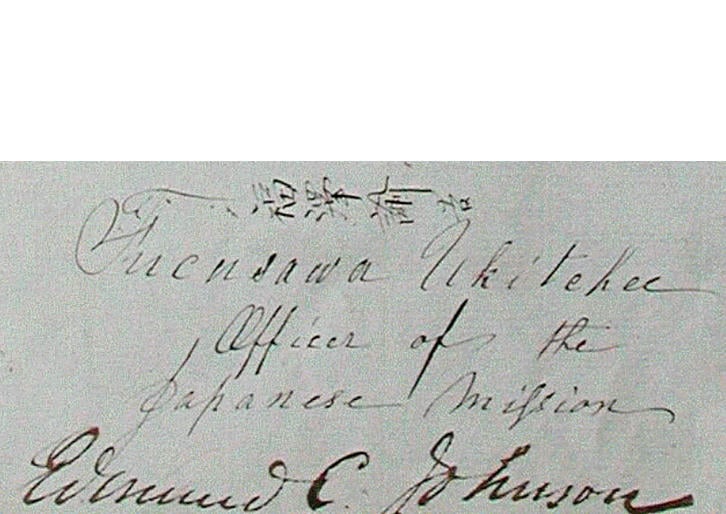 福澤諭吉
Fucusawa Ukitchee
Officer of the
Japanese Mission
Edmund C. Johnson